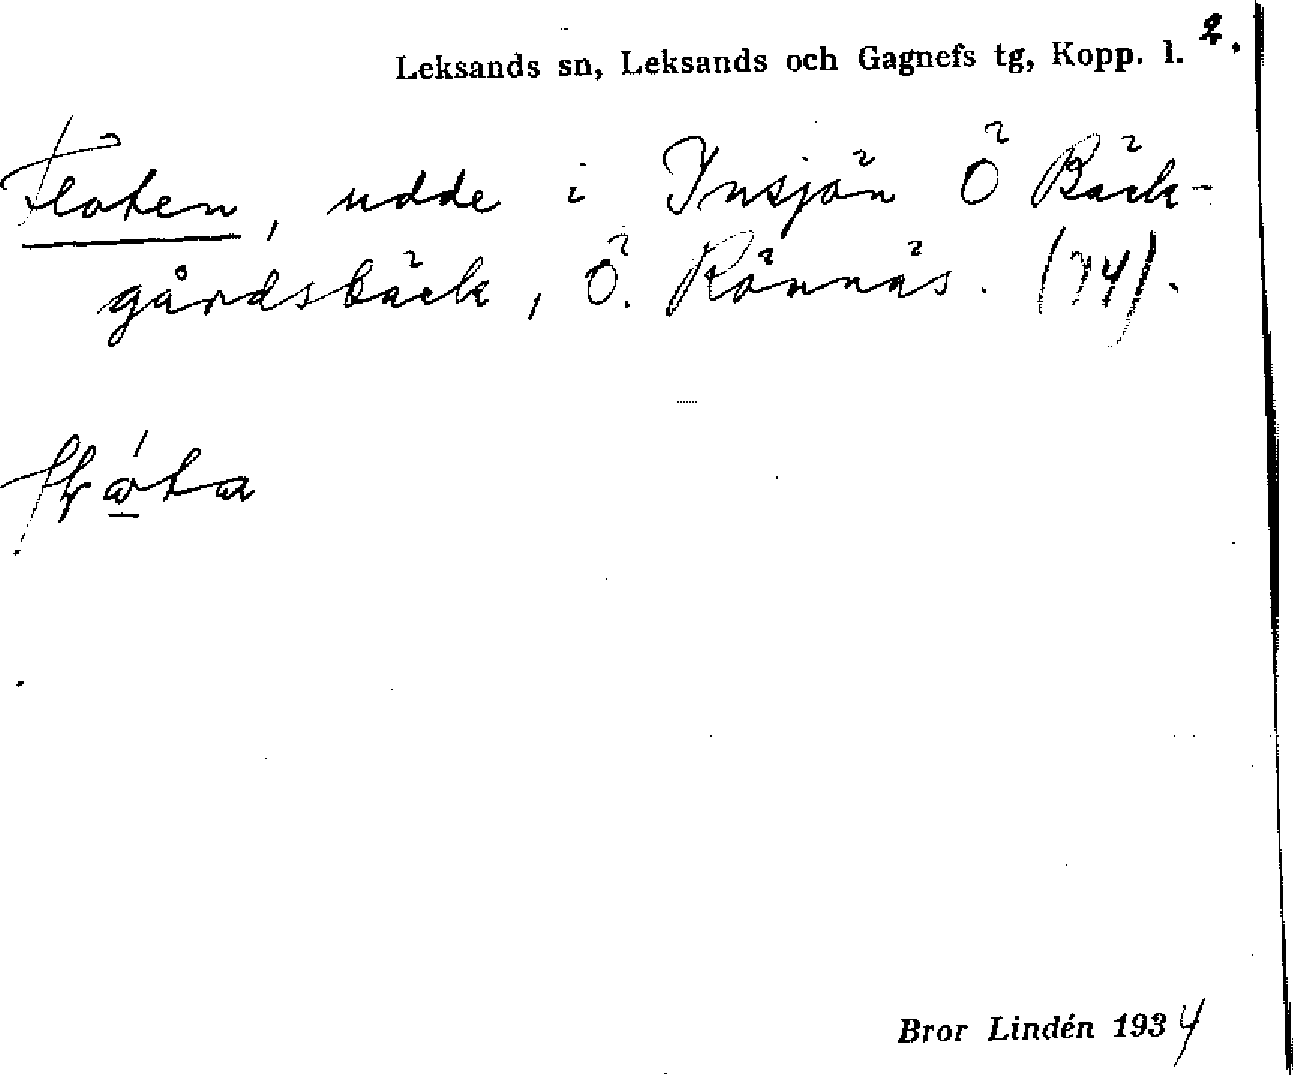 Leksands sn, Leksands och Gagnefs tg, Kopp. l. 2.
Floten, udde i Insjön Ö Bäck-
gårdsbäck, Ö. Rönnäs. (74).
Bror Lindén 1934